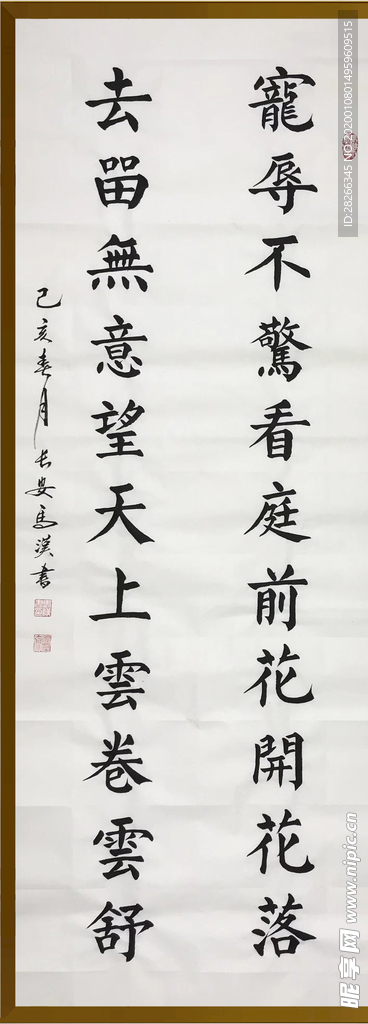 寵辱不驚看庭前花開花落
去畱無意望天上雲卷雲舒
己亥春月長安馬漢書
ID:28266345 NO:20200108014959609515
昵享网 www.nipic.cn